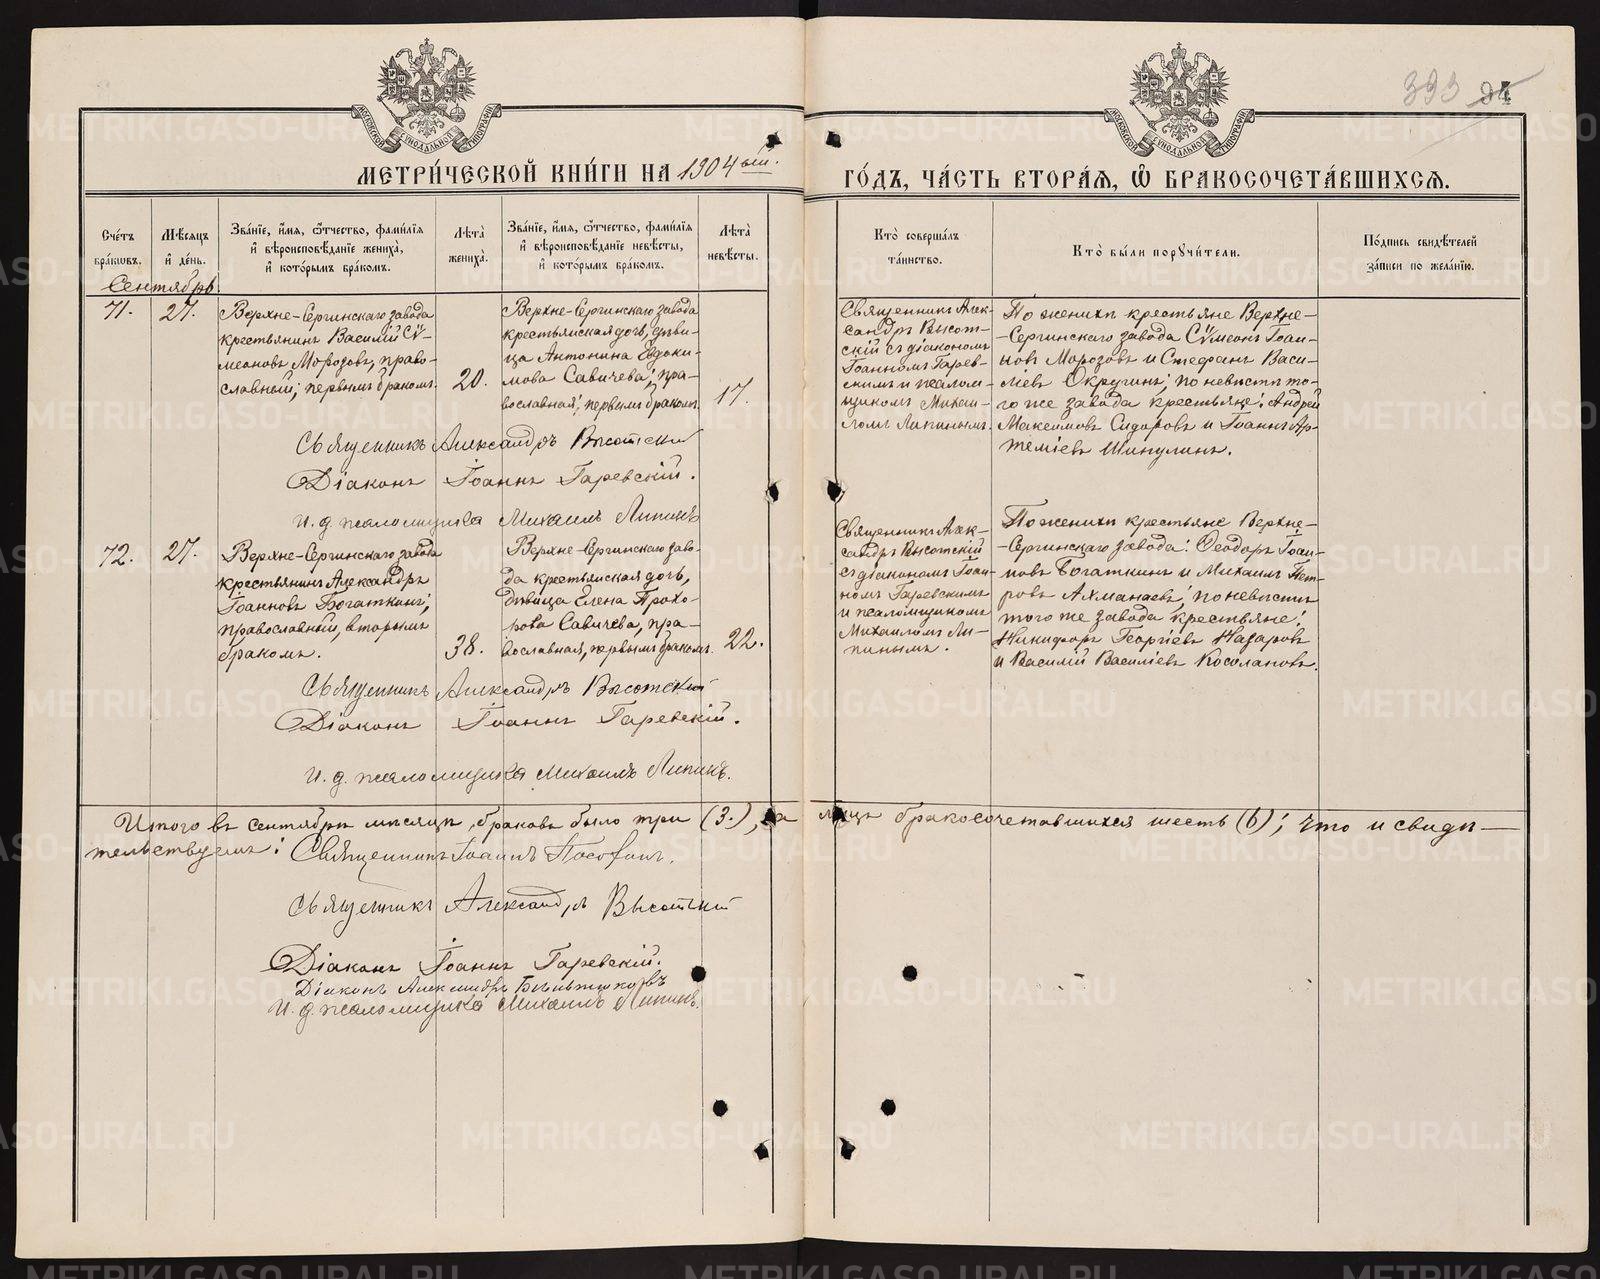 393 94
МЕТРИ́ЧЕСКОЙ КНИ́ГИ НА 1904ый.
ГО́ДЪ, ЧА́СТЬ ВТОРА́Я, Ѽ БРАКОСОЧЕТА́ВШИХСЯ.
Сче́тъ бра́ковъ.
Мѣ́сяцъ и҆ де́нь.
Зва́нїе, и҆́мя, ѻ҆́тчество, фами́лїя
и҆ вѣроисповѣ́данїе жениха̀,
и҆ кото́рымъ бра́комъ.
Лѣ́та̀ жениха̀.
Зва́нїе, и҆́мя, ѻ҆́тчество, фами́лїя
и҆ вѣроисповѣ́данїе невѣ́сты,
и҆ кото́рымъ бра́комъ.
Лѣ́та̀ невѣ́сты.
Кто̀ соверша́лъ
та́инство.
Кто̀ бы́ли порꙋчи́тели.
По́дпись свидѣ́телей
за́писи по жела́нїю.
Сентябрь.
71.
27.
Верхне-Сергинскаго завода
крестьянинъ Василій Сѵ-
меоновъ Морозовъ, право-
славный; первымъ бракомъ.
20.
Верхне-Сергинскаго завода
крестьянская дочь, дѣви-
ца Антонина Евдоки-
мова Савичева; пра-
вославная; первымъ бракомъ.
17.
Священникъ Алек-
сандръ Высот-
скій съ діакономъ
Іоанномъ Гарев-
скимъ и псалом-
щикомъ Михаи-
ломъ Липинымъ.
По женихѣ крестьяне Верхне-
-Сергинскаго завода Сѵмеонъ Іоан-
новъ Морозовъ и Стефанъ Васи-
ліевъ Окружинъ; по невѣстѣ то-
го же завода крестьяне: Андрей
Максимовъ Сидоровъ и Іоаннъ Ар-
теміевъ Шипулинъ.
Священникъ Александръ Высотскій
Діаконъ Іоаннъ Гаревскій.
И. д. псаломщика Михаилъ Липинъ
72.
27.
Верхне-Сергинскаго завода
крестьянинъ Александръ
Іоанновъ Богаткинъ;
православный, вторымъ
бракомъ.
38.
Верхне-Сергинскаго заво-
да крестьянская дочь,
дѣвица Елена Прохо-
рова Савичева, пра-
вославная, первымъ бракомъ.
22.
Священникъ Алек-
сандръ Высотскій
съ діакономъ Іоан-
номъ Гаревскимъ
и псаломщикомъ
Михаиломъ Ли-
пинымъ.
По женихѣ крестьяне Верхне-
-Сергинскаго завода: Ѳеодоръ Іоан-
новъ Богаткинъ и Михаилъ Пет-
ровъ Ахманаевъ; по невѣстѣ
того же завода крестьяне:
Никифоръ Георгіевъ Назаровъ
и Василій Василіевъ Косолаповъ.
Священникъ Александръ Высотскій
Діаконъ Іоаннъ Гаревскій.
И. д. псаломщика Михаилъ Липинъ.
Итого въ сентябрѣ мѣсяцѣ браковъ было три (3.), а лицъ бракосочетавшихся шесть (6); что и свидѣ-
тельствуемъ: Священникъ Іоаннъ
Священникъ Александръ Высотскій
Діаконъ Іоаннъ Гаревскій.
Діаконъ Александръ
И. д. псаломщика Михаилъ Липинъ.
METRIKI.GASO-URAL.RU